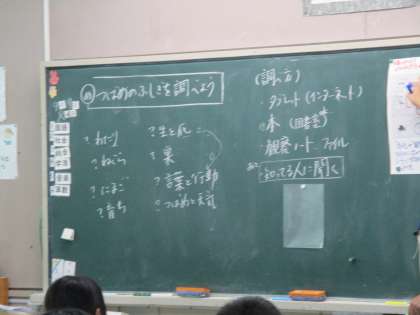 つばめのふしぎを調べよう
?わたり
?ねぐら
?たまご
?育ち
?生と死
?巣
?言葉と行動
?つばめと天気
(調べ方)
・タブレット(インターネット)
・本(図書室)
・観察ノート、ファイル
・知ってる人に聞く
国語
社会
算数